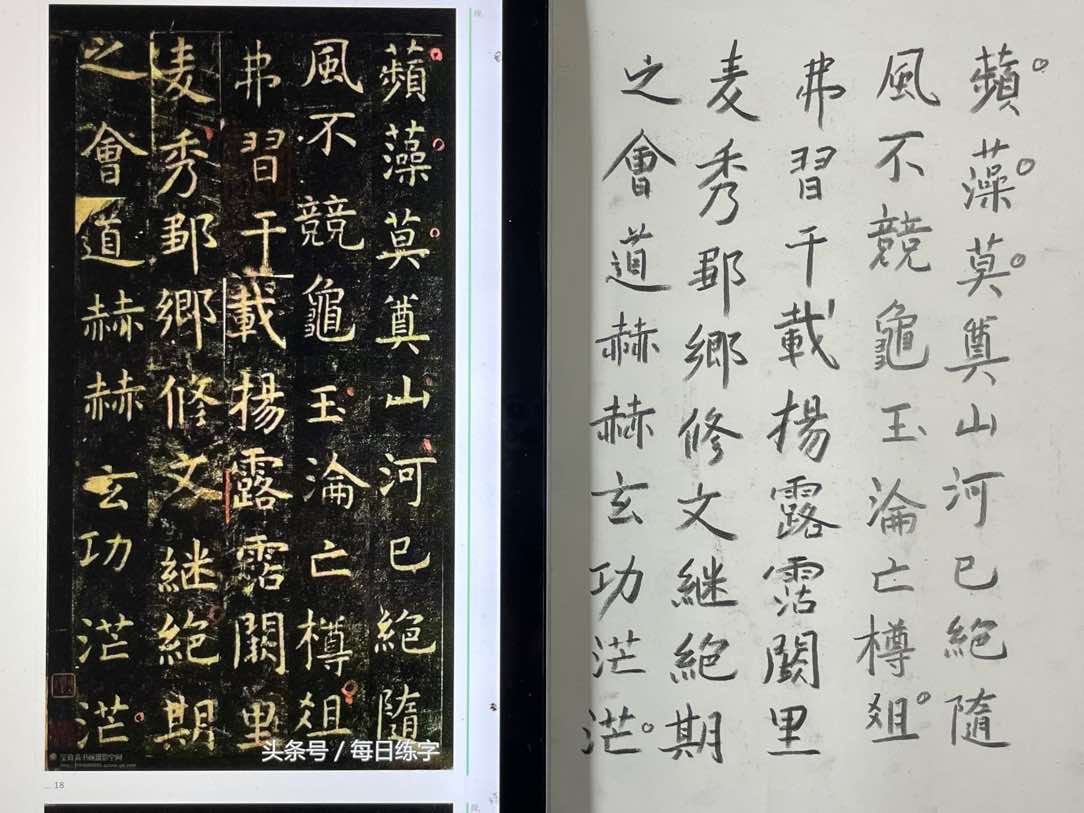 蘋藻莫奠山河已絕隨
風不競龜玉淪亡樽俎
弗習千載揚露霑闕里
麦秀鄒鄉修文継絕期
之會道赫赫玄功茫茫
头条号 / 每日练字
18
蘋藻莫奠山河已絕隨
風不競龜玉淪亡樽俎
弗習千載揚露霑闕里
麦秀鄒鄉修文継絕期
之會道赫赫玄功茫茫